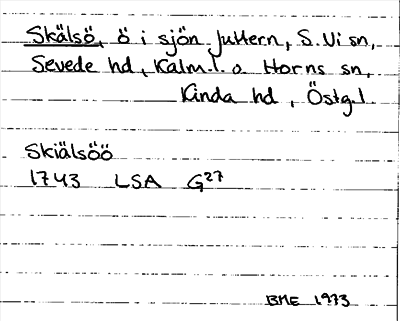 Skälsö, ö i sjön Juttern, S. Vi sn,
Sevede hd, Kalm.l. o. Horns sn,
Kinda hd, Östg.l.
Skiälsöö
1743 LSA G27
BME 1973